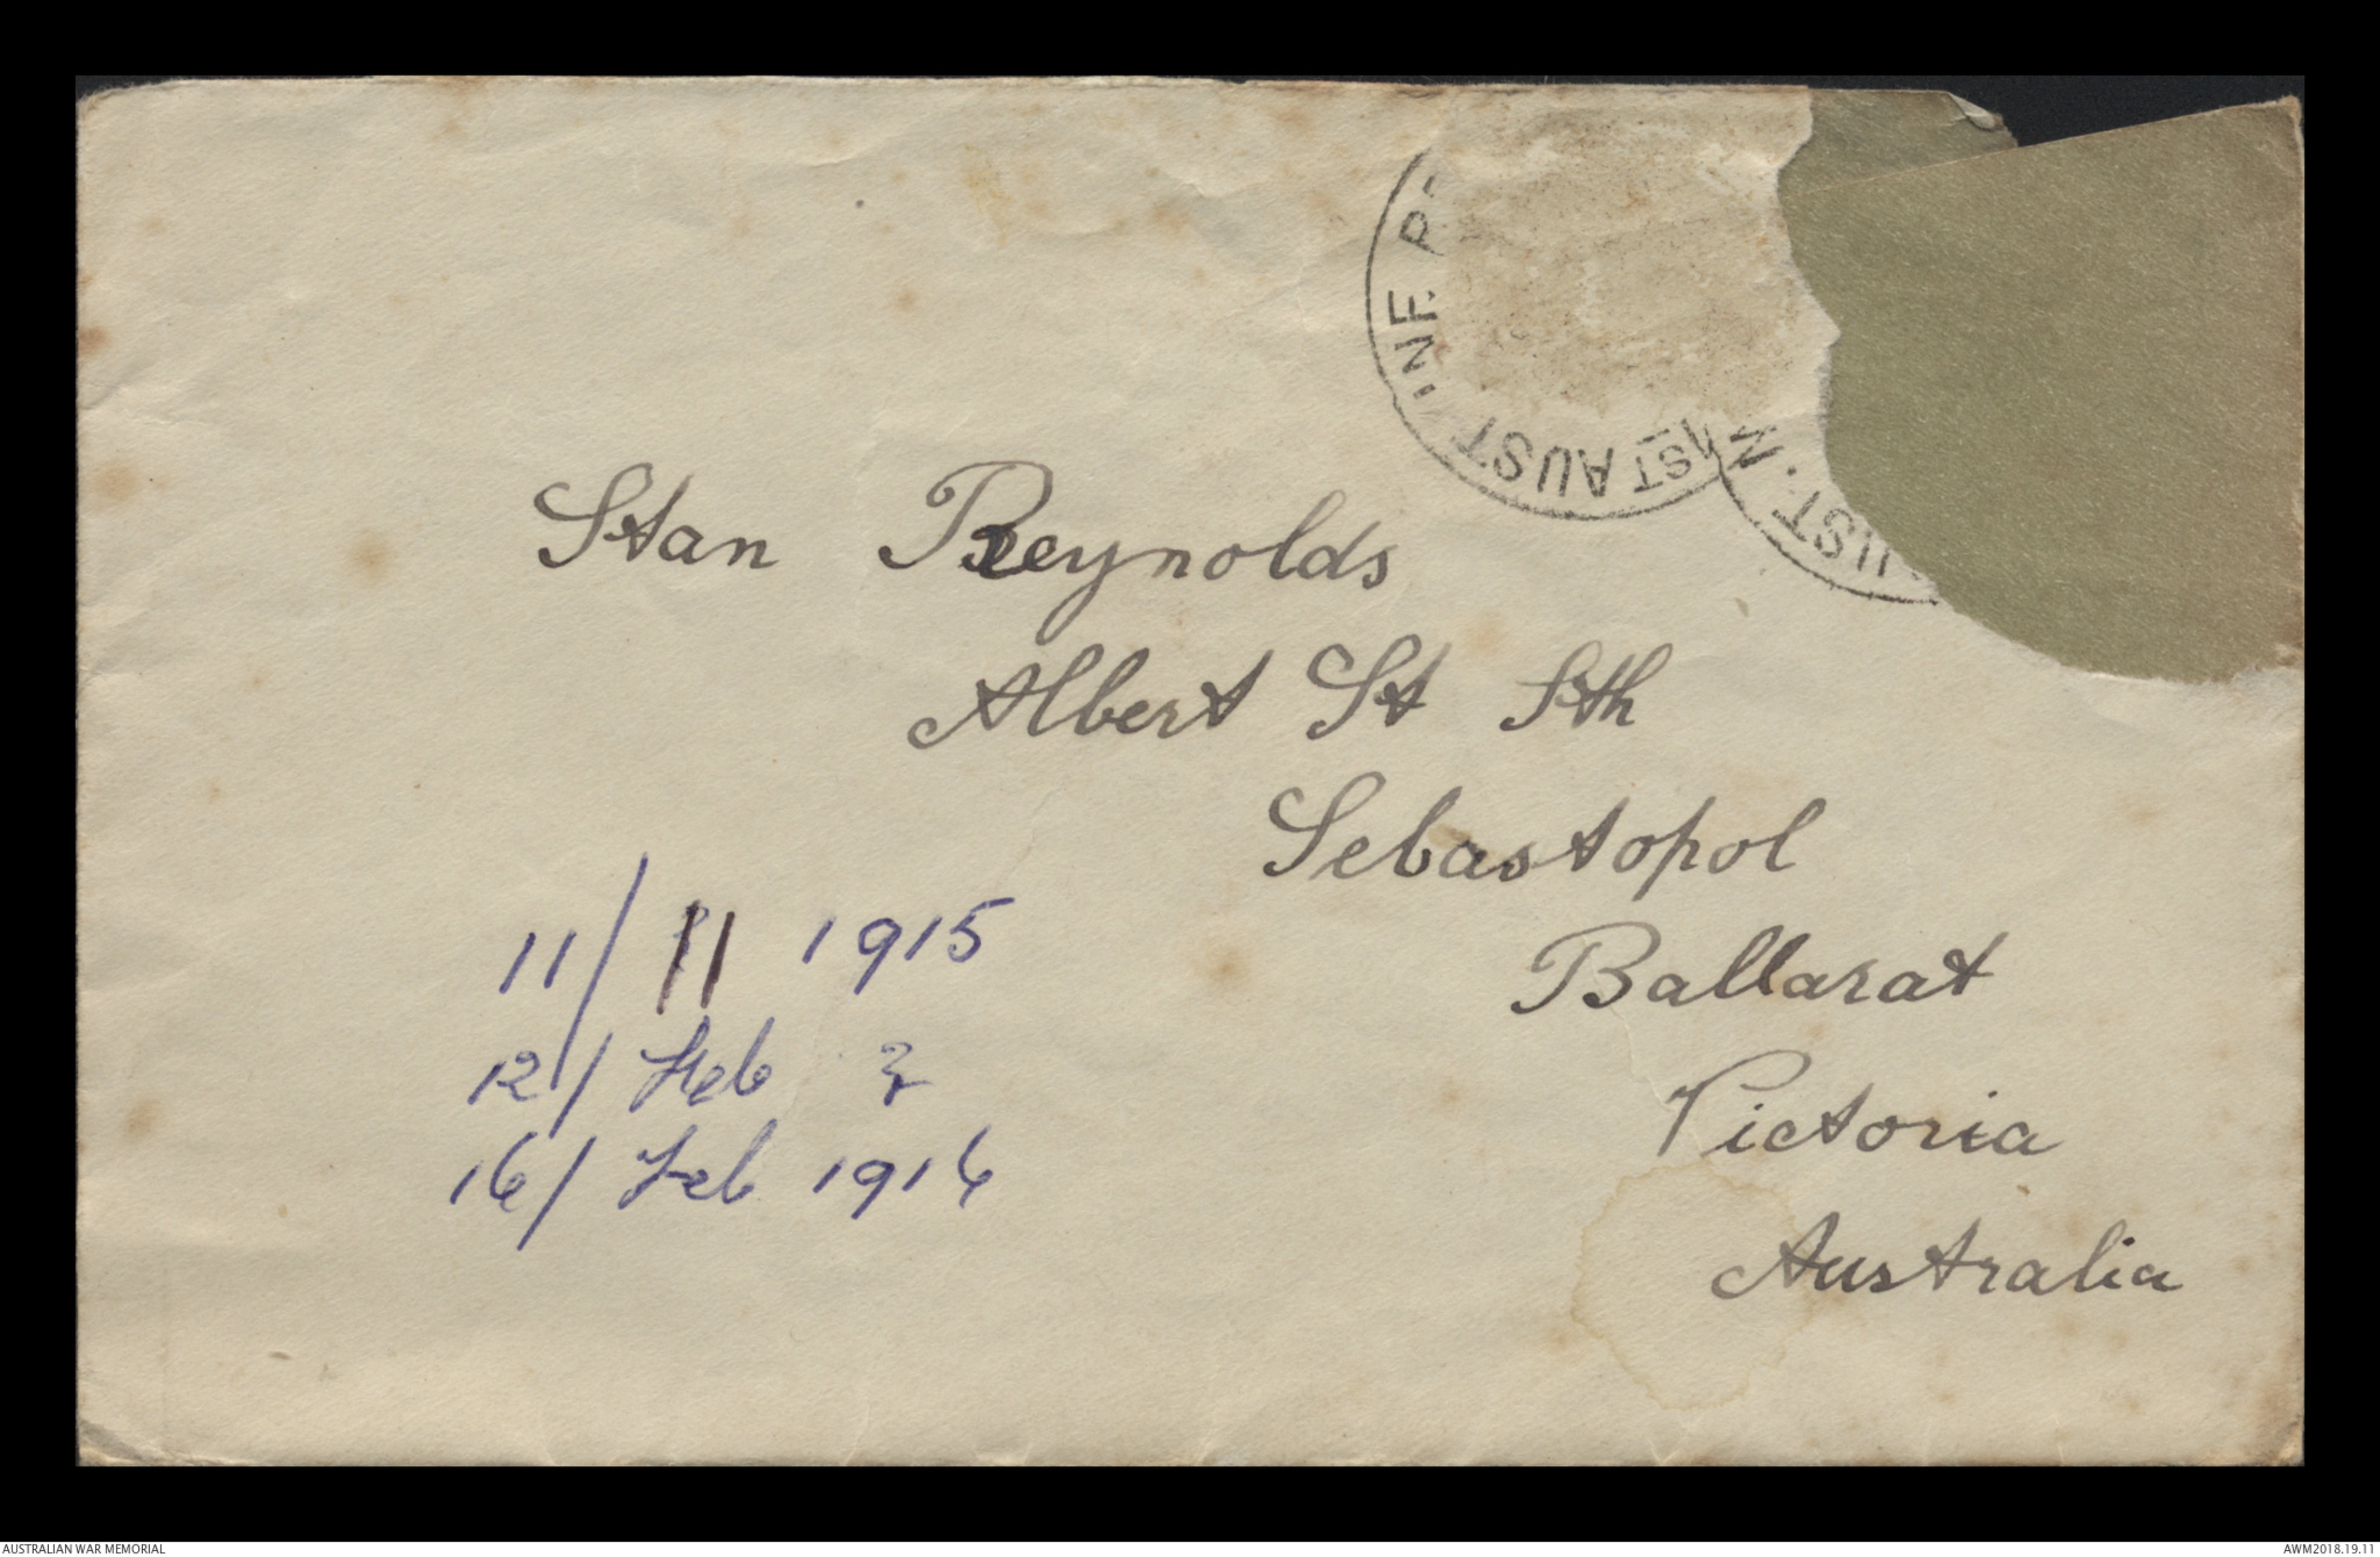 1ST AUST INF. P
UST. N
Stan Reynolds
Albert St Sth
Sebastopol
Ballarat
Victoria
Australia
11/11 1915
12/ Feb ?
16/ Feb 1916
AUSTRALIAN WAR MEMORIAL
AWM2018.19.11